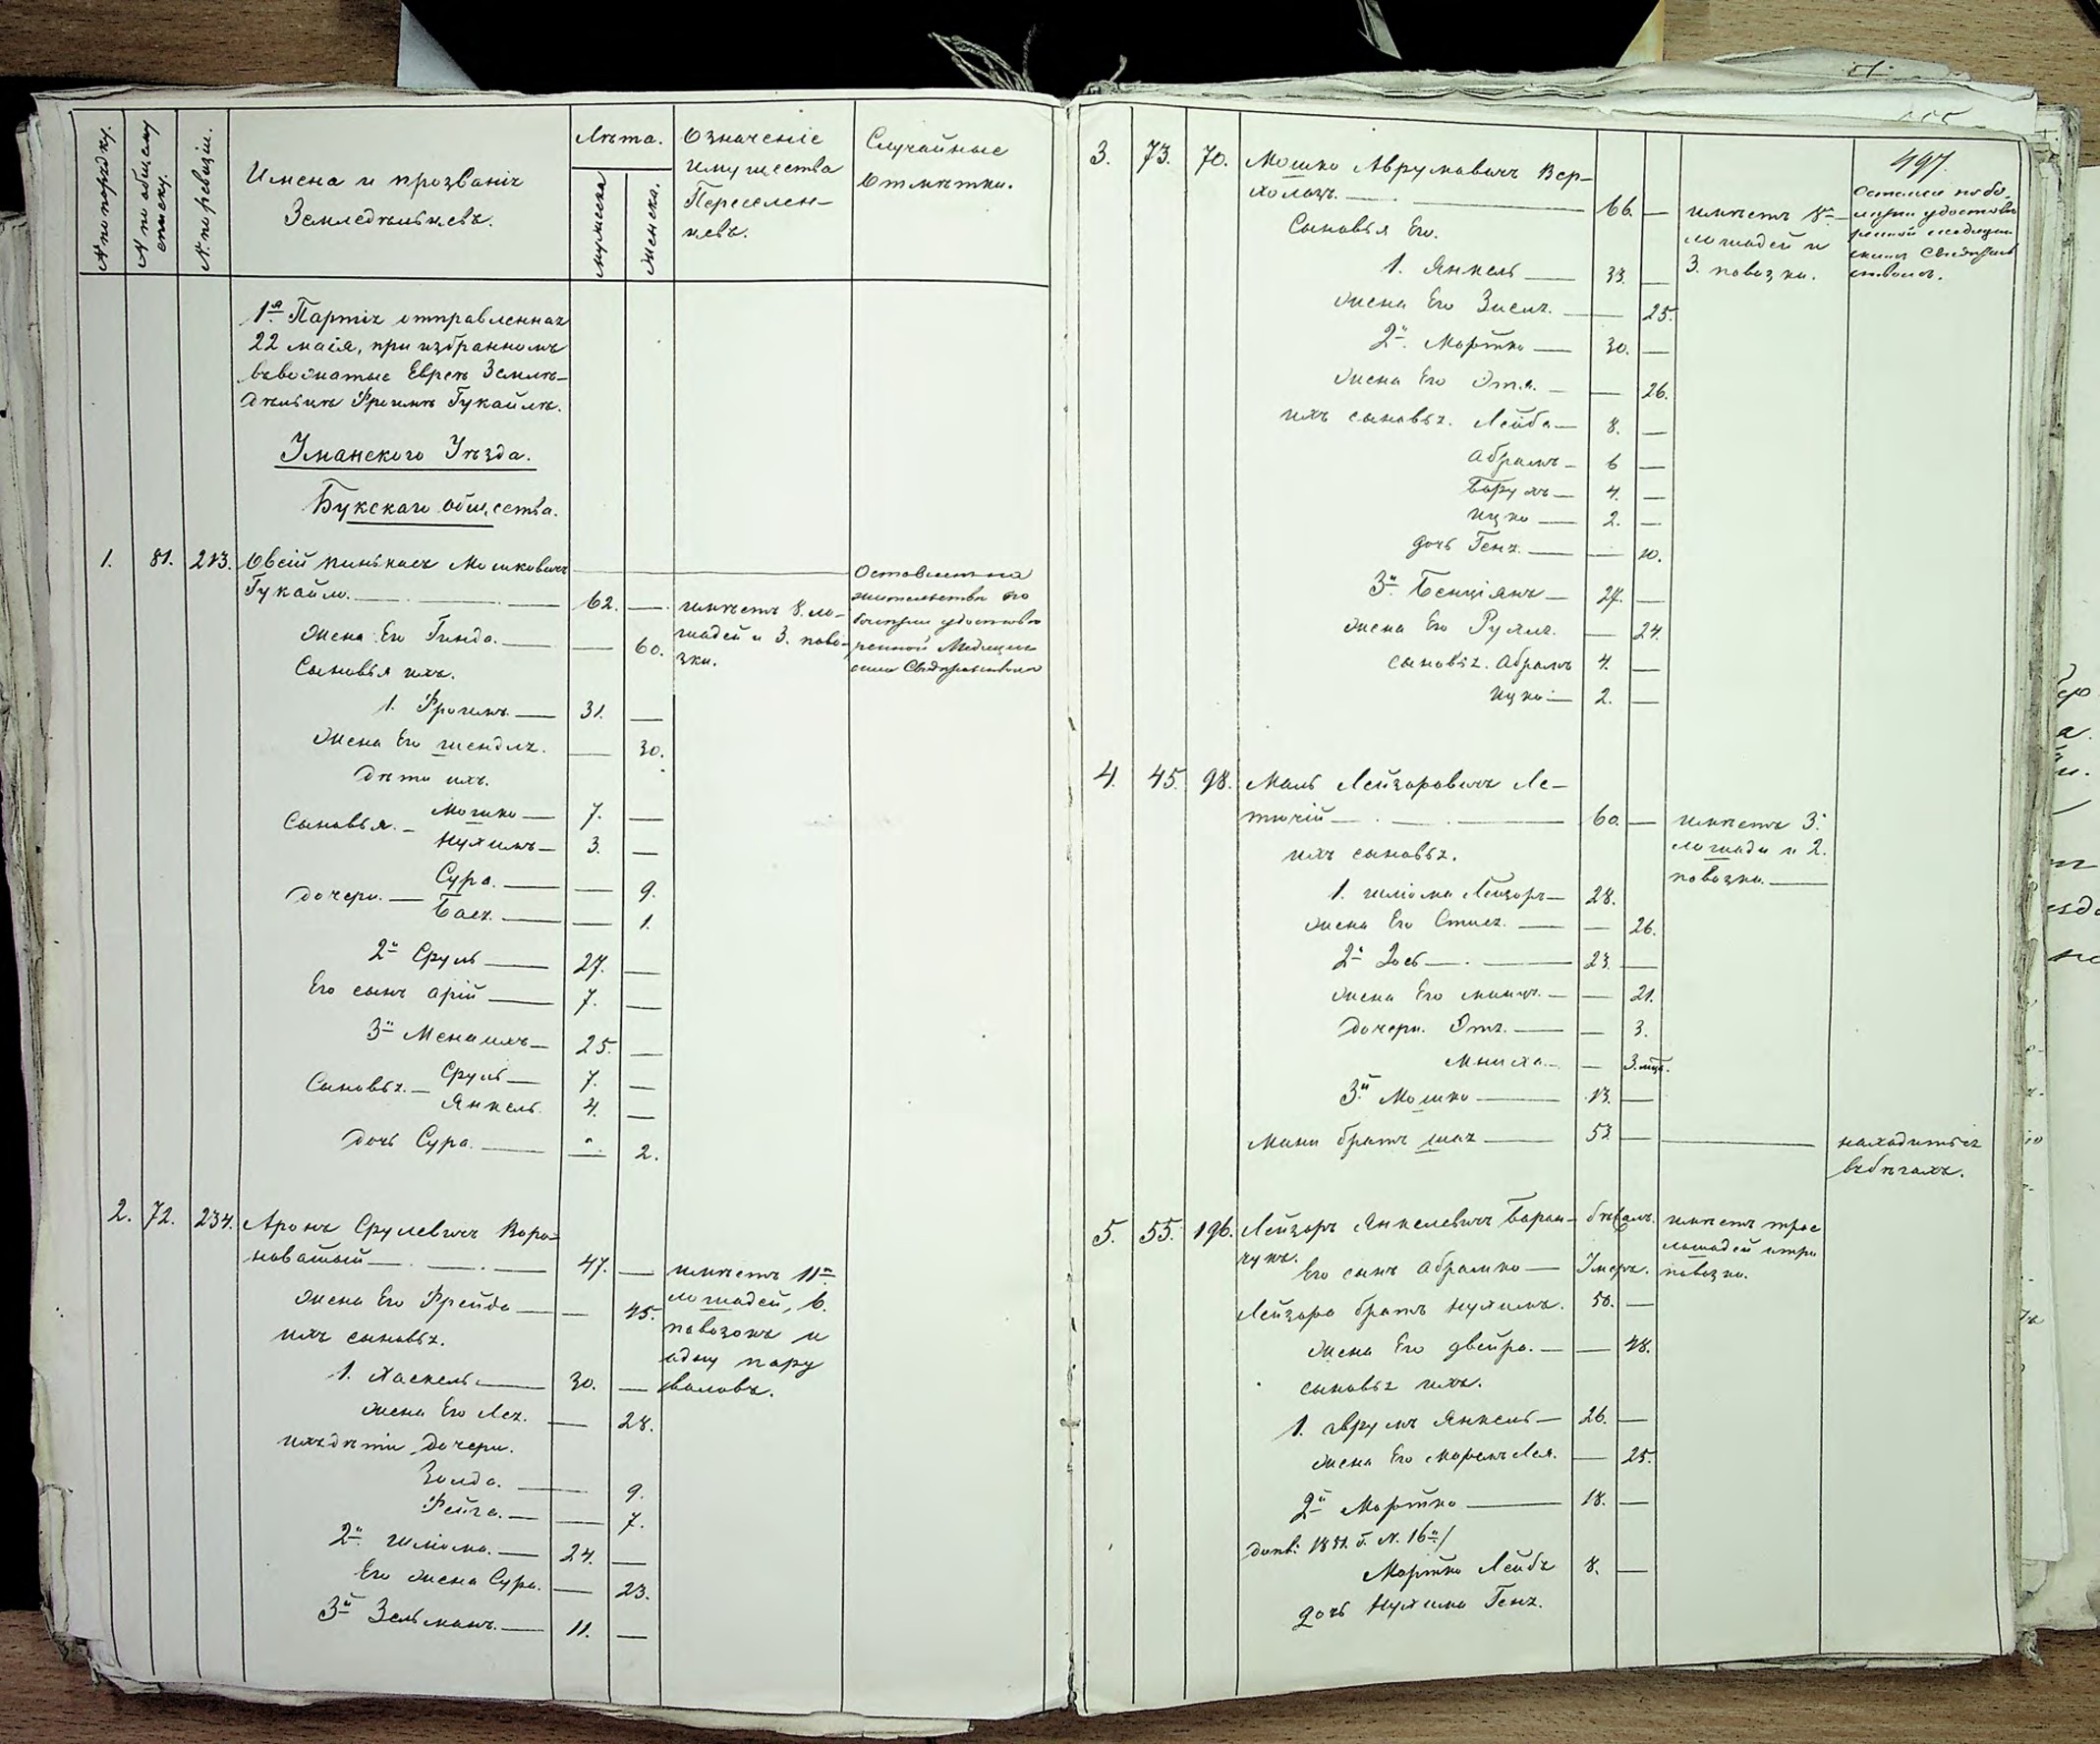 № по порядку.
№ по общему списку.
№ по ревизіи.
Имена и прозванія
Земледѣльцевъ.
Лѣта.
мужеска
женска.
Означеніе
имущества
Переселен-
цевъ.
Случайные
Отмѣтки.
1я Партія отправленная
22 маія, при избранномъ
въвожатые Еврея Земле-
дѣльцѣ Фроимѣ Гукайлѣ.
Уманского Уѣзда.
Букскаго общества.
1. 81. 213. Овсій Пинькасъ Мошковичъ
Гукайло. 62. — имѣетъ 8. ло-
шадей и 3. пово-
зки.
Оставленъ на
жительствѣ по
болѣзни удостовѣ
ренной Медицин
скимъ Свидѣтельствомъ
жена Его Гинда. — 60.
Сыновья ихъ.
1. Фроимъ. 31. —
жена Его шендля. — 30.
дѣти ихъ.
Сыновья. — Мошко — 7. —
Нухимъ — 3. —
дочери. — Сура. — 9.
Бася. — 1.
2й Сруль — 27. —
Его сынъ арій — 7. —
3й Менашъ — 25. —
Сыновья. — Сруль — 7. —
Янкель. 4. —
дочь Сура. — 2.
2. 72. 234. Аронъ Срулевичъ Воро-
новатый — 47. — имѣетъ 11ть
лошадей, 6.
повозокъ и
одну пару
воловъ.
жена Его Фрейда — 45.
ихъ сыновья.
1. Хаскель. — 30. —
жена Его Лея. — 28.
ихъ дѣти дочери.
Золда. — 9.
Фейга. — 7.
2й шліома. — 24. —
Его жена Сура. — 23.
3й Зельманъ. — 11. —
497.
3. 73. 70. Мошко Аврумовичъ Вер-
холазъ. — 66. — имѣетъ 8ть
лошадей и
3. повозки.
Остался по бо
лѣзни удостовѣ
ренной медицин
скимъ Свидѣтель
ствомъ.
Сыновья Его.
1. Янкель — 33. —
жена Его Зися. — 25.
2й. Мортко — 30. —
жена Его Этя. — 26.
ихъ сыновья. Лейба — 8. —
Абрамъ — 6 —
Борухъ — 4. —
ицко — 2. —
дочь Геня. — 10.
3й Бенціянъ — 27. —
жена Его Рухля. — 24.
сыновья. Абрамъ 4. —
ицко — 2. —
4. 45. 98. Мань Лейзоровичъ Ле-
тючій — 60. — имѣетъ 3.
лошади и 2.
повозки. —
ихъ сыновья.
1. шліома Лейзоръ — 28.
жена Его Стися. — 26.
2й Зось — 23. —
жена Его — 21.
дочери. Этя. — 3.
Мниха. — 3. мца.
3й Мошко — 13. —
Мани братъ шая — 53. — находится
въ бѣгахъ.
5. 55. 196. Лейзоръ Янкелевичъ Баран-
чукъ. бѣгахъ. имѣетъ трое
лошадей и три
повозки.
Его сынъ Абрамко — Умеръ.
Лейзора братъ Нухимъ. 50. —
жена Его двейра. — 48.
сыновья ихъ.
1. аврумъ Янкель — 26. —
жена Его Лея. — 25.
2й Мортко — 18. —
1851. г. №. 16й/
Мортко Лейбъ 8. —
дочь Нухима Геня.